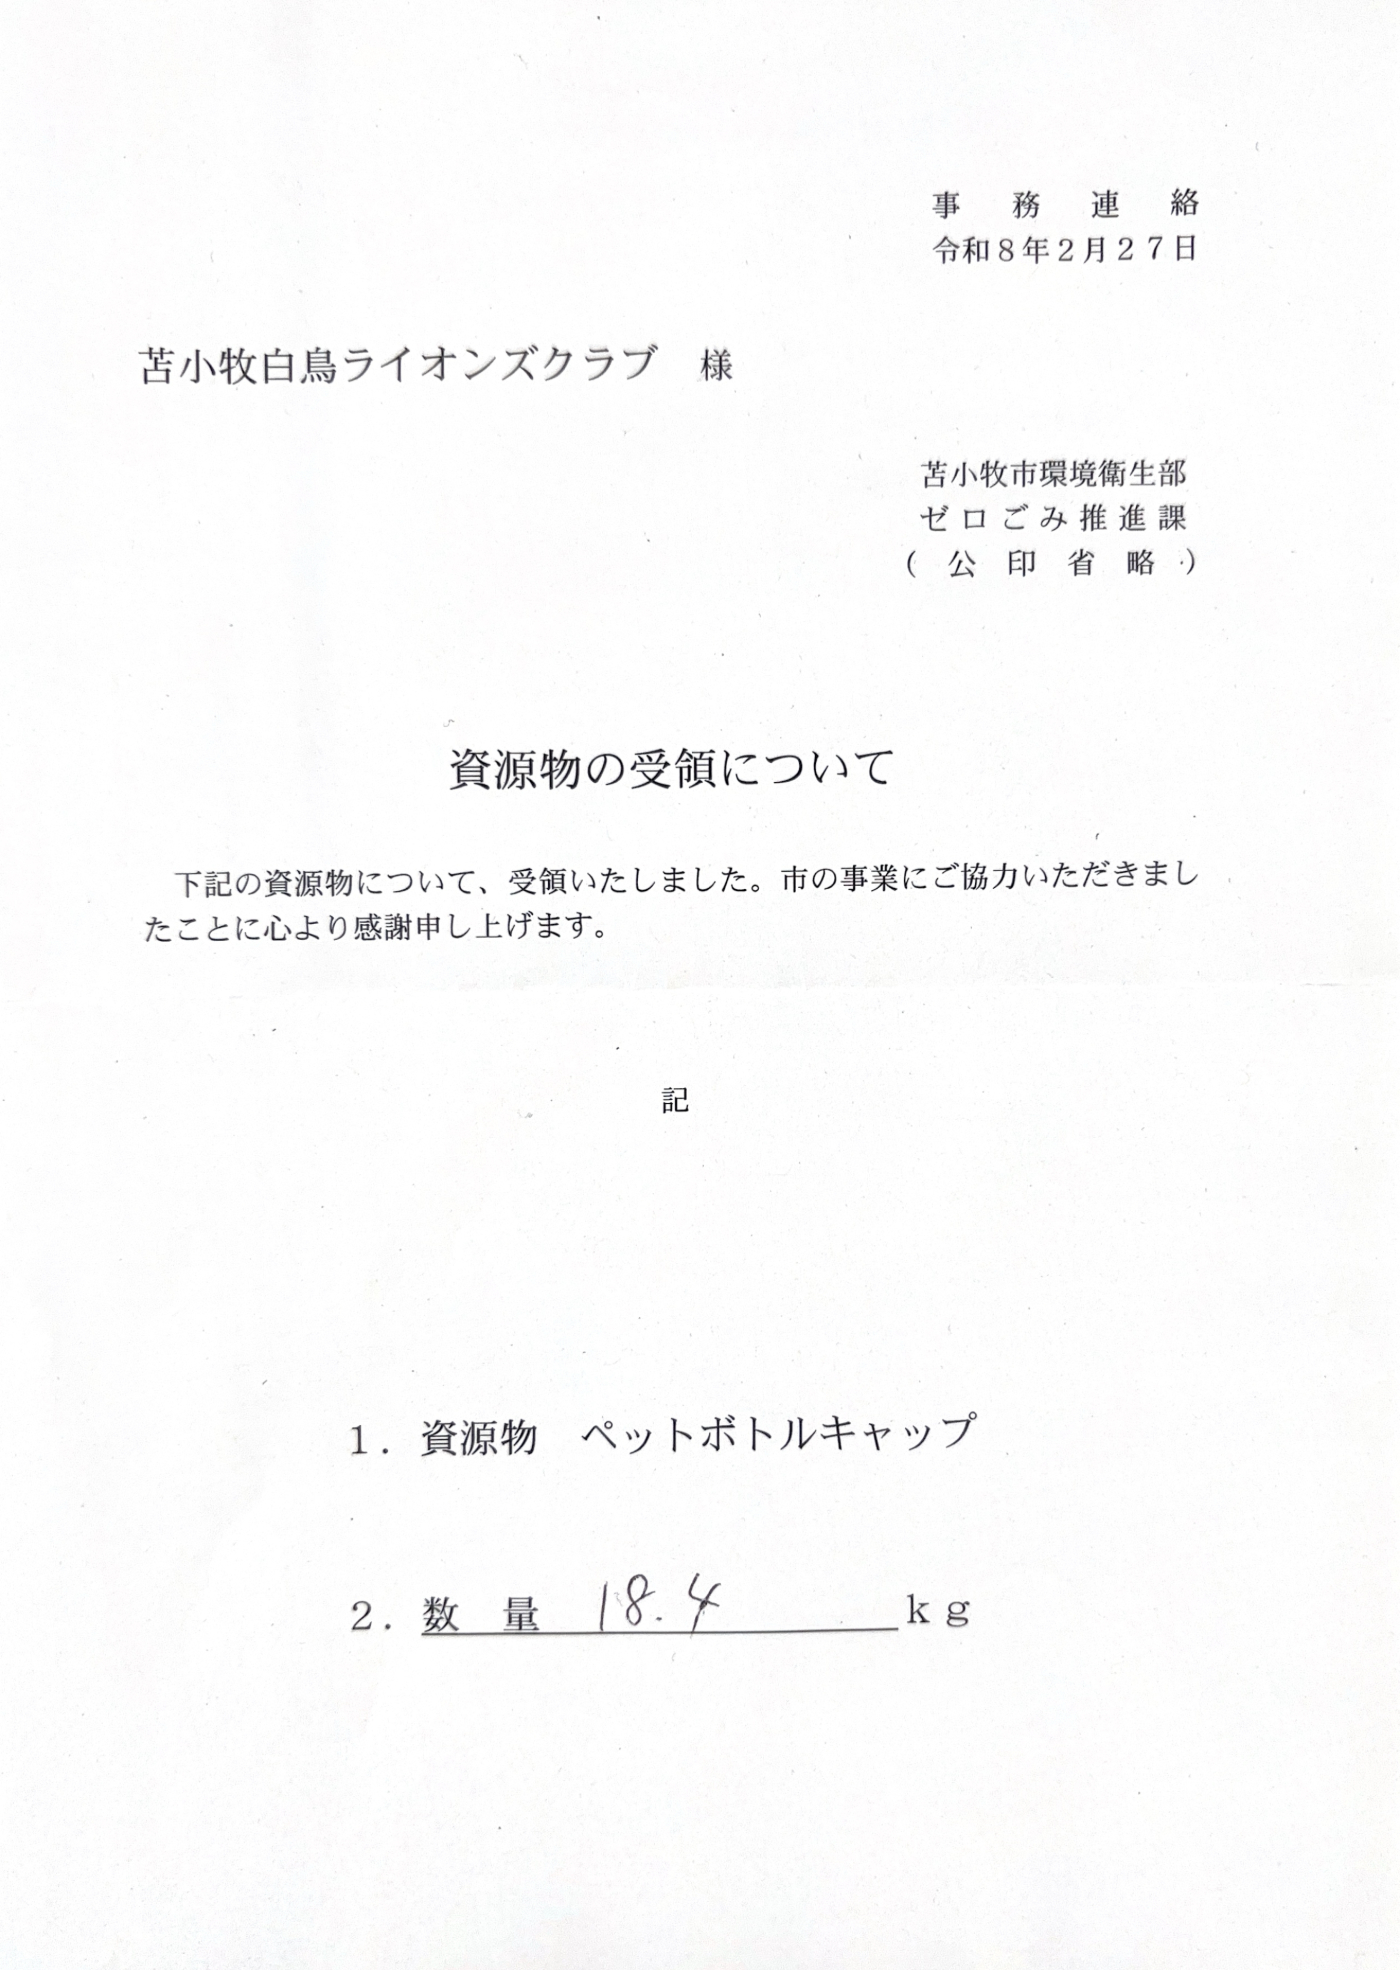 事務連絡
令和８年２月２７日
苫小牧白鳥ライオンズクラブ　様
苫小牧市環境衛生部
ゼロごみ推進課
（公印省略）
資源物の受領について
下記の資源物について、受領いたしました。市の事業にご協力いただきまし
たことに心より感謝申し上げます。
記
１．資源物　ペットボトルキャップ
２．数　量　18.4　ｋｇ